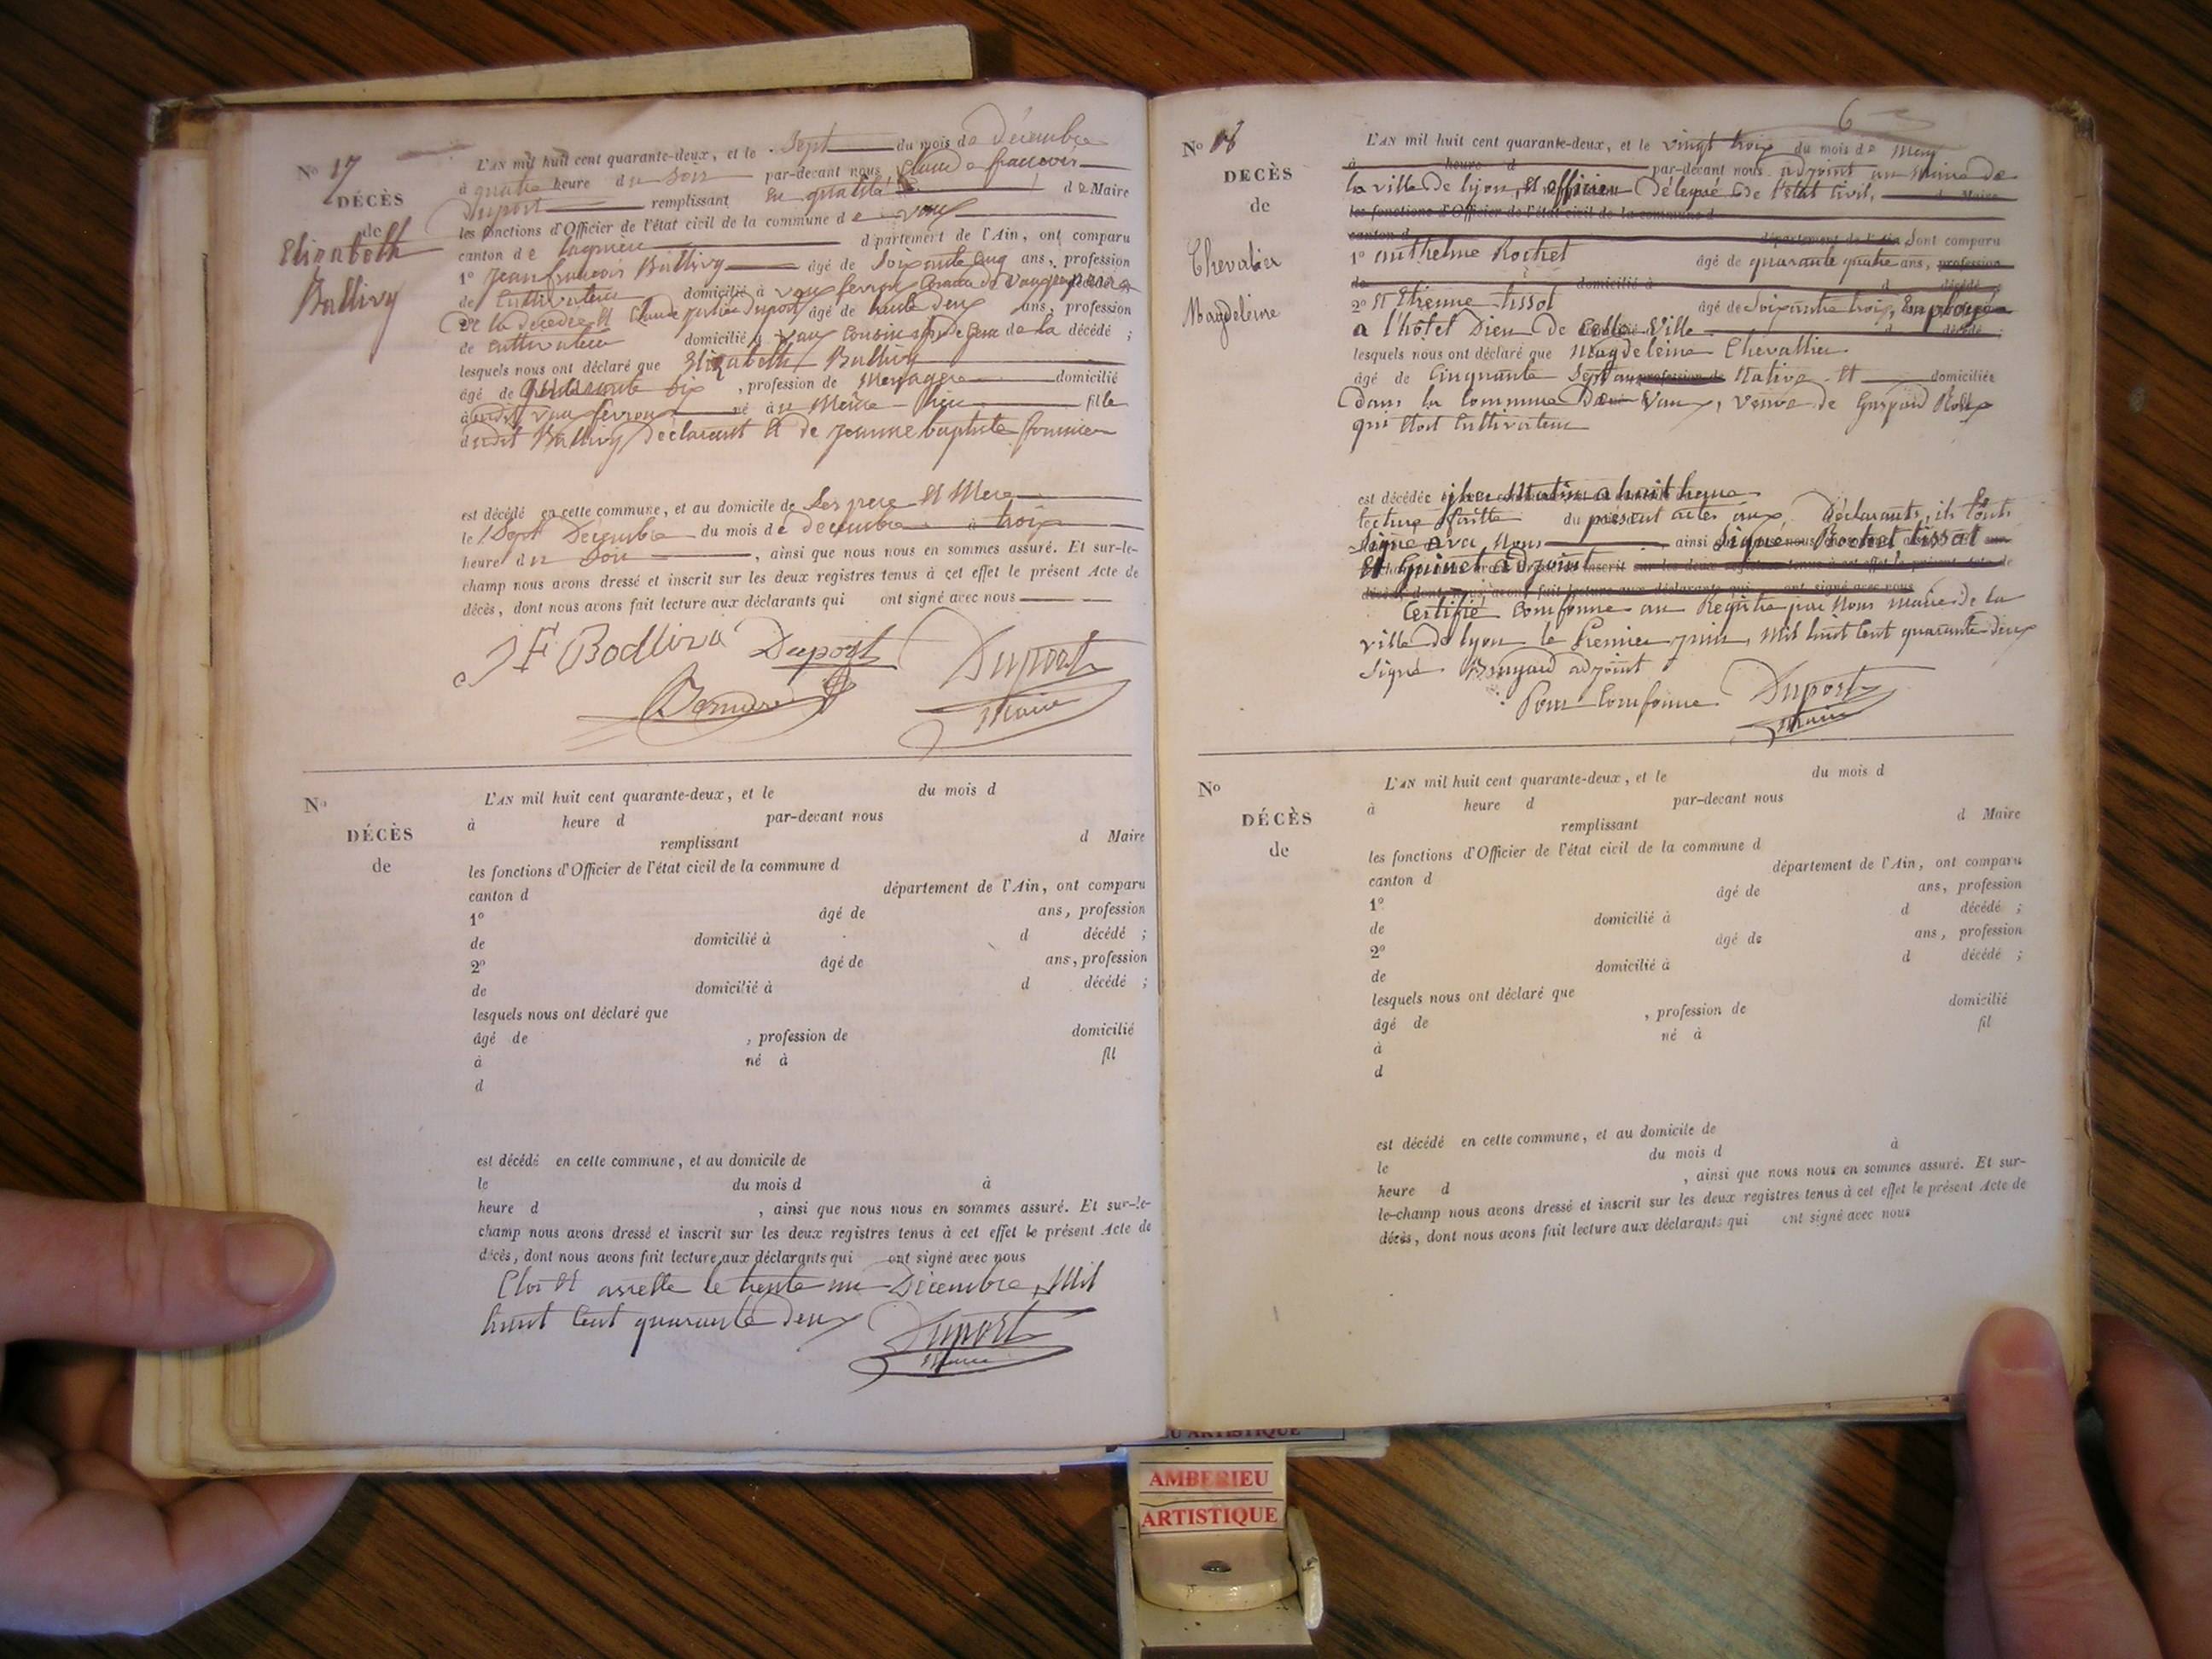 No 17
DÉCÈS
de
Elizabeth
Ballivy
L'AN mil huit cent quarante-deux, et le Sept du mois de décembre
à quatre heure du Soir par-devant nous, Claude francois
Duport remplissant En qualité de Maire
les fonctions d'Officier de l'état civil de la commune de vaux
canton de lagnieu département de l'Ain, ont comparu
1º Jean francois Ballivy âgé de Soixante Cinq ans, profession
de Cultivateur domicilié à vaux fevroux
de la décédée Et Claude Duport âgé de trente deux ans, profession
de cultivateur domicilié à vaux cousin de la décédé ;
lesquels nous ont déclaré que Elizabeth Ballivy
âgé de , profession de Menagere domicilié
à vaux fevroux né au Même lieu fille
dudit Ballivy déclarant Et de jeanne baptiste fournier
est décédé en cette commune, et au domicile de Ses pere Et Mere
le Sept Décembre du mois de decembre à trois
heure du Soir , ainsi que nous nous en sommes assuré. Et sur-le-
champ nous avons dressé et inscrit sur les deux registres tenus à cet effet le présent Acte de
décès, dont nous avons fait lecture aux déclarants qui ont signé avec nous
JF Bodliva Duport Duport
Maire
No
DÉCÈS
de
L'AN mil huit cent quarante-deux, et le du mois d
à heure d par-devant nous
remplissant d Maire
les fonctions d'Officier de l'état civil de la commune d
canton d département de l'Ain, ont comparu
1º âgé de ans, profession
de domicilié à d décédé ;
2º âgé de ans, profession
de domicilié à d décédé ;
lesquels nous ont déclaré que
âgé de , profession de domicilié
à né à fil
d
est décédé en cette commune, et au domicile de
le du mois d à
heure d , ainsi que nous nous en sommes assuré. Et sur-le-
champ nous avons dressé et inscrit sur les deux registres tenus à cet effet le présent Acte de
décès, dont nous avons fait lecture aux déclarants qui ont signé avec nous
Clos Et arrette le trente un Décembre, Mil
huit Cent quarante deux Duport
Maire
6
No 18
DÉCÈS
de
Chevalier
Magdeleine
L'AN mil huit cent quarante-deux, et le vingt trois du mois de May
à heure d par-devant nous adjoint au Maire de
la ville de lyon, Et officier délégué de l'état Civil, d Maire
les fonctions d'Officier de l'état civil de la commune d
canton d département de l'Ain Sont comparu
1º anthelme Rochet âgé de quarante quatre ans, profession
de domicilié à d décédé ;
2º Et Etienne tissot âgé de Soixante trois, Employés
a l'hotel Dieu de cette Ville d décédé
lesquels nous ont déclaré que Magdeleine Chevallier
âgé de Cinquante Sept ans profession de Native Et domiciliée
Dans la Commune de Vaux, veuve de Gaspard
qui Etoit Cultivateur
est décédée hier Matin a huit heure
lecture faitte du présent actes aux Déclarants, ils l'ont
Signe avec Nous , ainsi Signé Rochet tissot
Et Guinet adjoint
décès, dont nous avons fait lecture aux déclarants qui ont signé avec nous
Certifié Comforme au Registre par Nous maire de la
ville de lyon le Premier juin, Mil huit Cent quarante deux
Signé adjoint
Pour Comforme Duport
Maire
No
DÉCÈS
de
L'AN mil huit cent quarante-deux, et le du mois d
à heure d par-devant nous
remplissant d Maire
les fonctions d'Officier de l'état civil de la commune d
canton d département de l'Ain, ont comparu
1º âgé de ans, profession
de domicilié à d décédé ;
2º âgé de ans, profession
de domicilié à d décédé ;
lesquels nous ont déclaré que
âgé de , profession de domicilié
à né à fil
d
est décédé en cette commune, et au domicile de
le du mois d à
heure d , ainsi que nous nous en sommes assuré. Et sur-
le-champ nous avons dressé et inscrit sur les deux registres tenus à cet effet le présent Acte de
décès, dont nous avons fait lecture aux déclarants qui ont signé avec nous
ARTISTIQUE
AMBERIEU
ARTISTIQUE